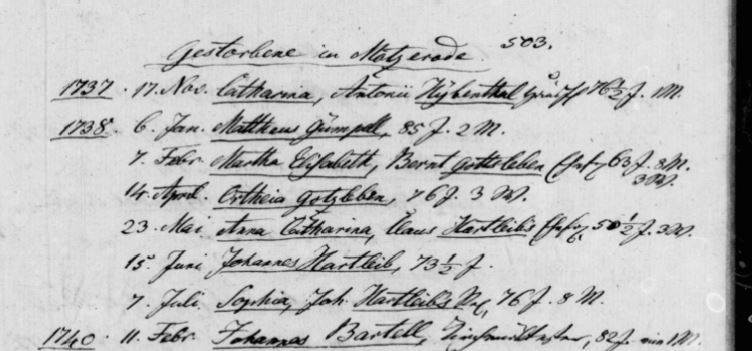 Gestorbene in Motzerode. 503.
1737. 17. Nov. Catharina, Antonii Hÿbenthal 76½ J. 1 M.
1738 6. Jan. Mattheus Gümpell, 85 J. 2 M.
7. Febr. Martha Elisabeth, Bernt Gottsleben 63 J. 8 M.
3 W.
14. April Ortheia Gotzleben, 76 J. 3 W.
23. Mai Anna Catharina, Claus Hartleib's 50½ J. 3 W.
15. Juni Johannes Hartleib, 73½ J.
7. Juli Sophia, Joh. Hartleib's 76 J. 8 M.
1740. 11. Febr. Johannes Bartell, 82 J. 1 M.